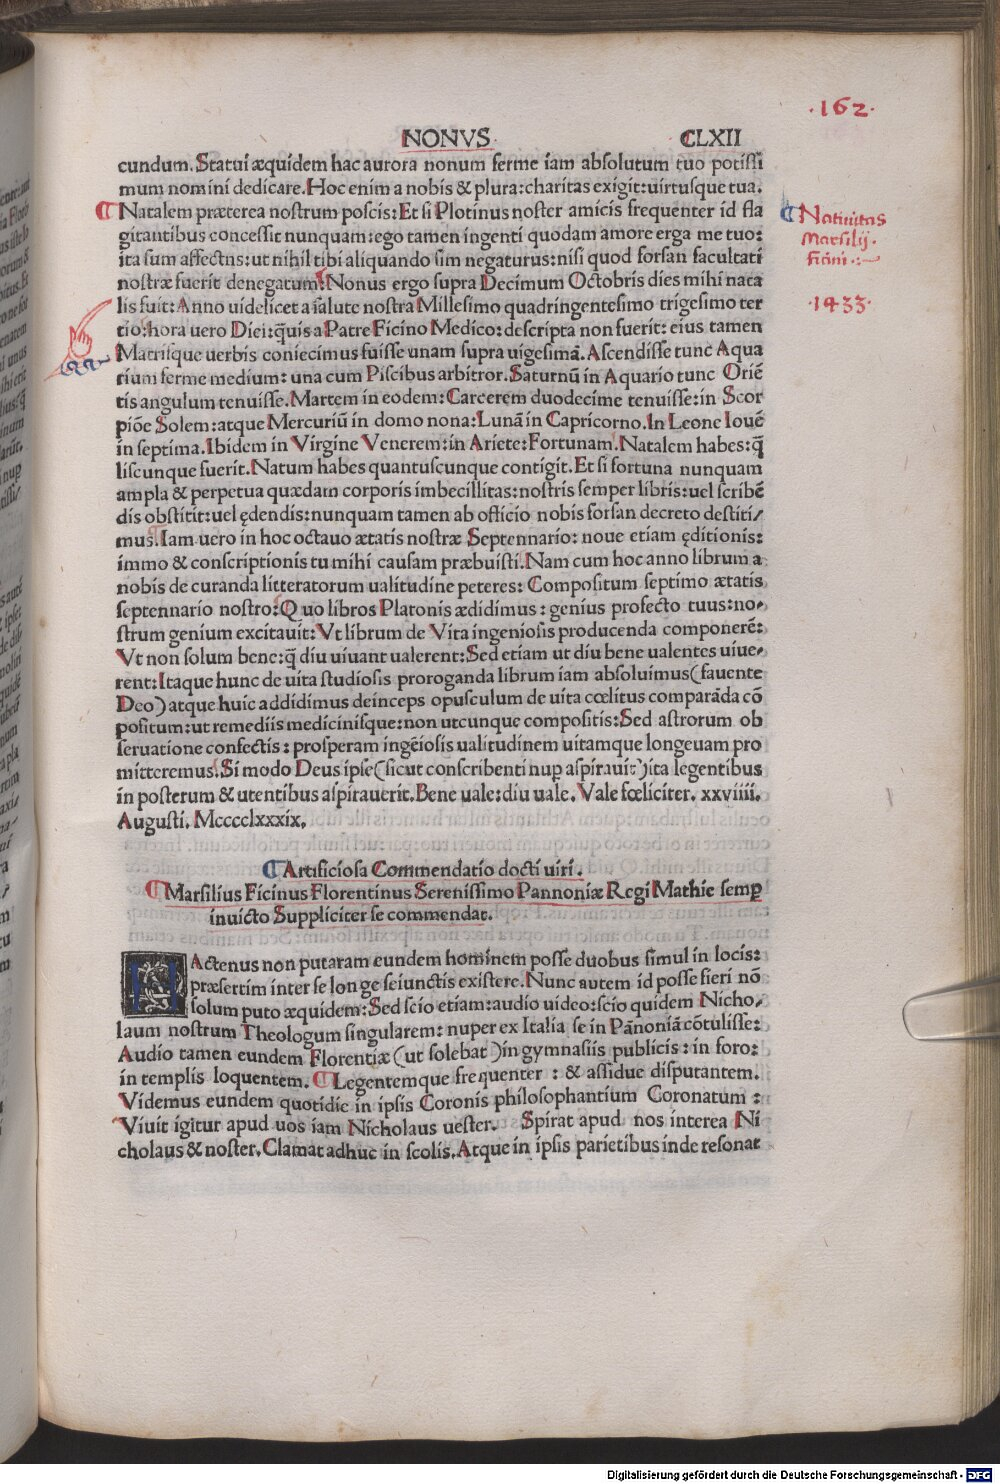 ·162·
NONVS. CLXII
cundum. Statui æquidem hac aurora nonum ferme iam absolutum tuo potissi
mum nomini dedicare. Hoc enim a nobis & plura: charitas exigit: uirtusque tua.
¶ Natalem præterea nostrum poscis: Et si Plotinus noster amicis frequenter id fla
gitantibus concessit nunquam: ego tamen ingenti quodam amore erga me tuo:
ita sum affectus: ut nihil tibi aliquando sim negaturus: nisi quod forsan facultati
nostræ fuerit denegatum. Nonus ergo supra Decimum Octobris dies mihi nata
lis fuit: Anno uidelicet a salute nostra Millesimo quadringentesimo trigesimo ter
tio: hora uero Diei: q̃uis a Patre Ficino Medico: descripta non fuerit: eius tamen
Matrisque uerbis coniecimus fuisse unam supra uigesimã. Ascendisse tunc Aqua
rium ferme medium: una cum Piscibus arbitror. Saturnũ in Aquario tunc Oriẽ
tis angulum tenuisse. Martem in eodem: Carcerem duodecime tenuisse: in Scor
piõe Solem: atque Mercuriũ in domo nona: Lunã in Capricorno. In Leone Iouẽ
in septima. Ibidem in Virgine Venerem: in Ariete: Fortunam. Natalem habes: q̃
liscunque fuerit. Natum habes quantuscunque contigit. Et si fortuna nunquam
ampla & perpetua quædam corporis imbecillitas: nostris semper libris: uel scribẽ
dis obstitit: uel ędendis: nunquam tamen ab officio nobis forsan decreto destiti/
mus. Iam uero in hoc octauo ætatis nostræ Septennario: noue etiam ędition​is:
immo & conscriptionis tu mihi causam præbuisti. Nam cum hoc anno librum a
nobis de curanda litteratorum ualitudine peteres: Compositum septimo ætatis
septennario nostro: Quo libros Platonis ædidimus: genius profecto tuus: no-
strum genium excitauit: Vt librum de Vita ingeniosis producenda componerẽ:
Vt non solum bene: q̃ diu uiuant ualerent: Sed etiam ut diu bene ualentes uiue-
rent: Itaque hunc de uita studiosis proroganda librum iam absoluimus (fauente
Deo) atque huic addidimus deinceps opusculum de uita cœlitus comparãda cõ
positum: ut remediis medicinisque: non utcunque compositis: Sed astrorum ob
seruatione confectis: prosperam ingẽiosis ualitudinem uitamque longeuam pro
mitteremus. Si modo Deus ipse (sicut conscribenti nuꝑ aspirauit) ita legentibus
in posterum & utentibus aspirauerit. Bene uale: diu uale. Vale fœliciter. xxviiii.
Augusti. Mcccclxxxix.
¶ Natiuitas
Marsilij
ficini
·1433·
¶ Artificiosa Commendatio docti uiri.
¶ Marsilius Ficinus Florentinus Serenissimo Pannoniæ Regi Mathie semꝑ
inuicto Suppliciter se commendat.
HActenus non putaram eundem hominem posse duobus simul in locis:
præsertim inter se longe seiunctis existere. Nunc autem id posse fieri nõ
solum puto æquidem: Sed scio etiam: audio uideo: scio quidem Nicho/
laum nostrum Theologum singularem: nuper ex Italia se in Pãnoniã cõtulisse:
Audio tamen eundem Florentiæ (ut solebat) in gymnasiis publicis: in foro:
in templis loquentem. ¶ Legentemque frequenter: & assidue disputantem.
Videmus eundem quotidie in ipsis Coronis philosophantium Coronatum:
Viuit igitur apud uos iam Nicholaus uester. Spirat apud nos interea Ni
cholaus & noster. Clamat adhuc in scolis. Atque in ipsis parietibus inde resonat
Digitalisierung gefördert durch die Deutsche Forschungsgemeinschaft - DFG